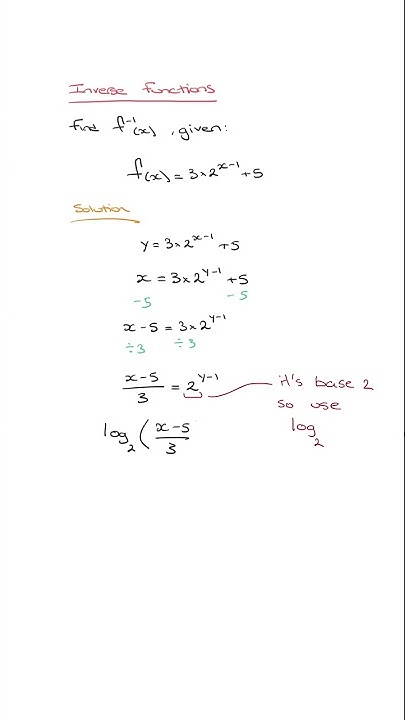 Inverse Functions
Find f⁻¹(x), given:
f(x) = 3×2ˣ⁻¹ + 5
Solution
y = 3×2ˣ⁻¹ + 5
x = 3×2ʸ⁻¹ + 5
-5 -5
x - 5 = 3×2ʸ⁻¹
÷3 ÷3
(x-5)/3 = 2ʸ⁻¹
it's base 2
so use
log₂
log₂ ( (x-5)/3